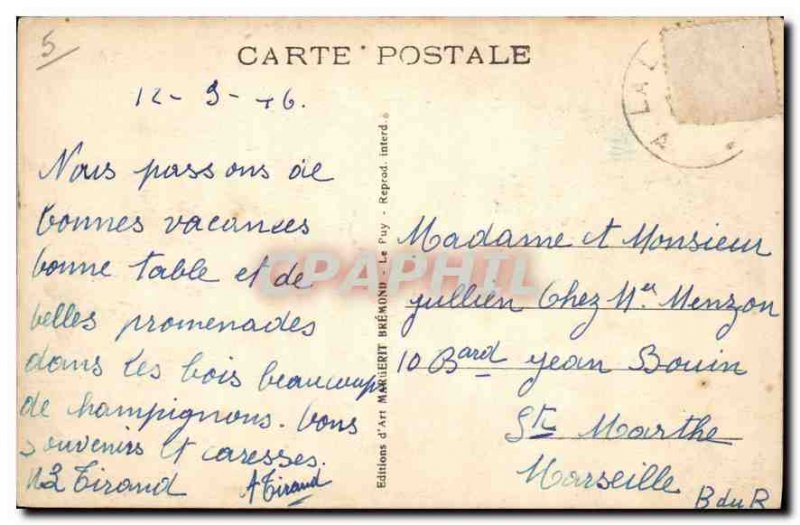 5
CARTE POSTALE
12-9-46.
Nous passons de
bonnes vacances
bonne table et de
belles promenades
dans les bois beaucoup
de hampignons. bons
souvenirs et caresses.
Tirand A Tirand
Editions d'Art MARGERIT BRÉMOND - Le Puy - Reprod. interd.
A LA
CPAPHIL
Madame et Monsieur
jullien Chez Mer Menzon
10 Bard jean Bouin
Ste Marthe
Marseille
B du R